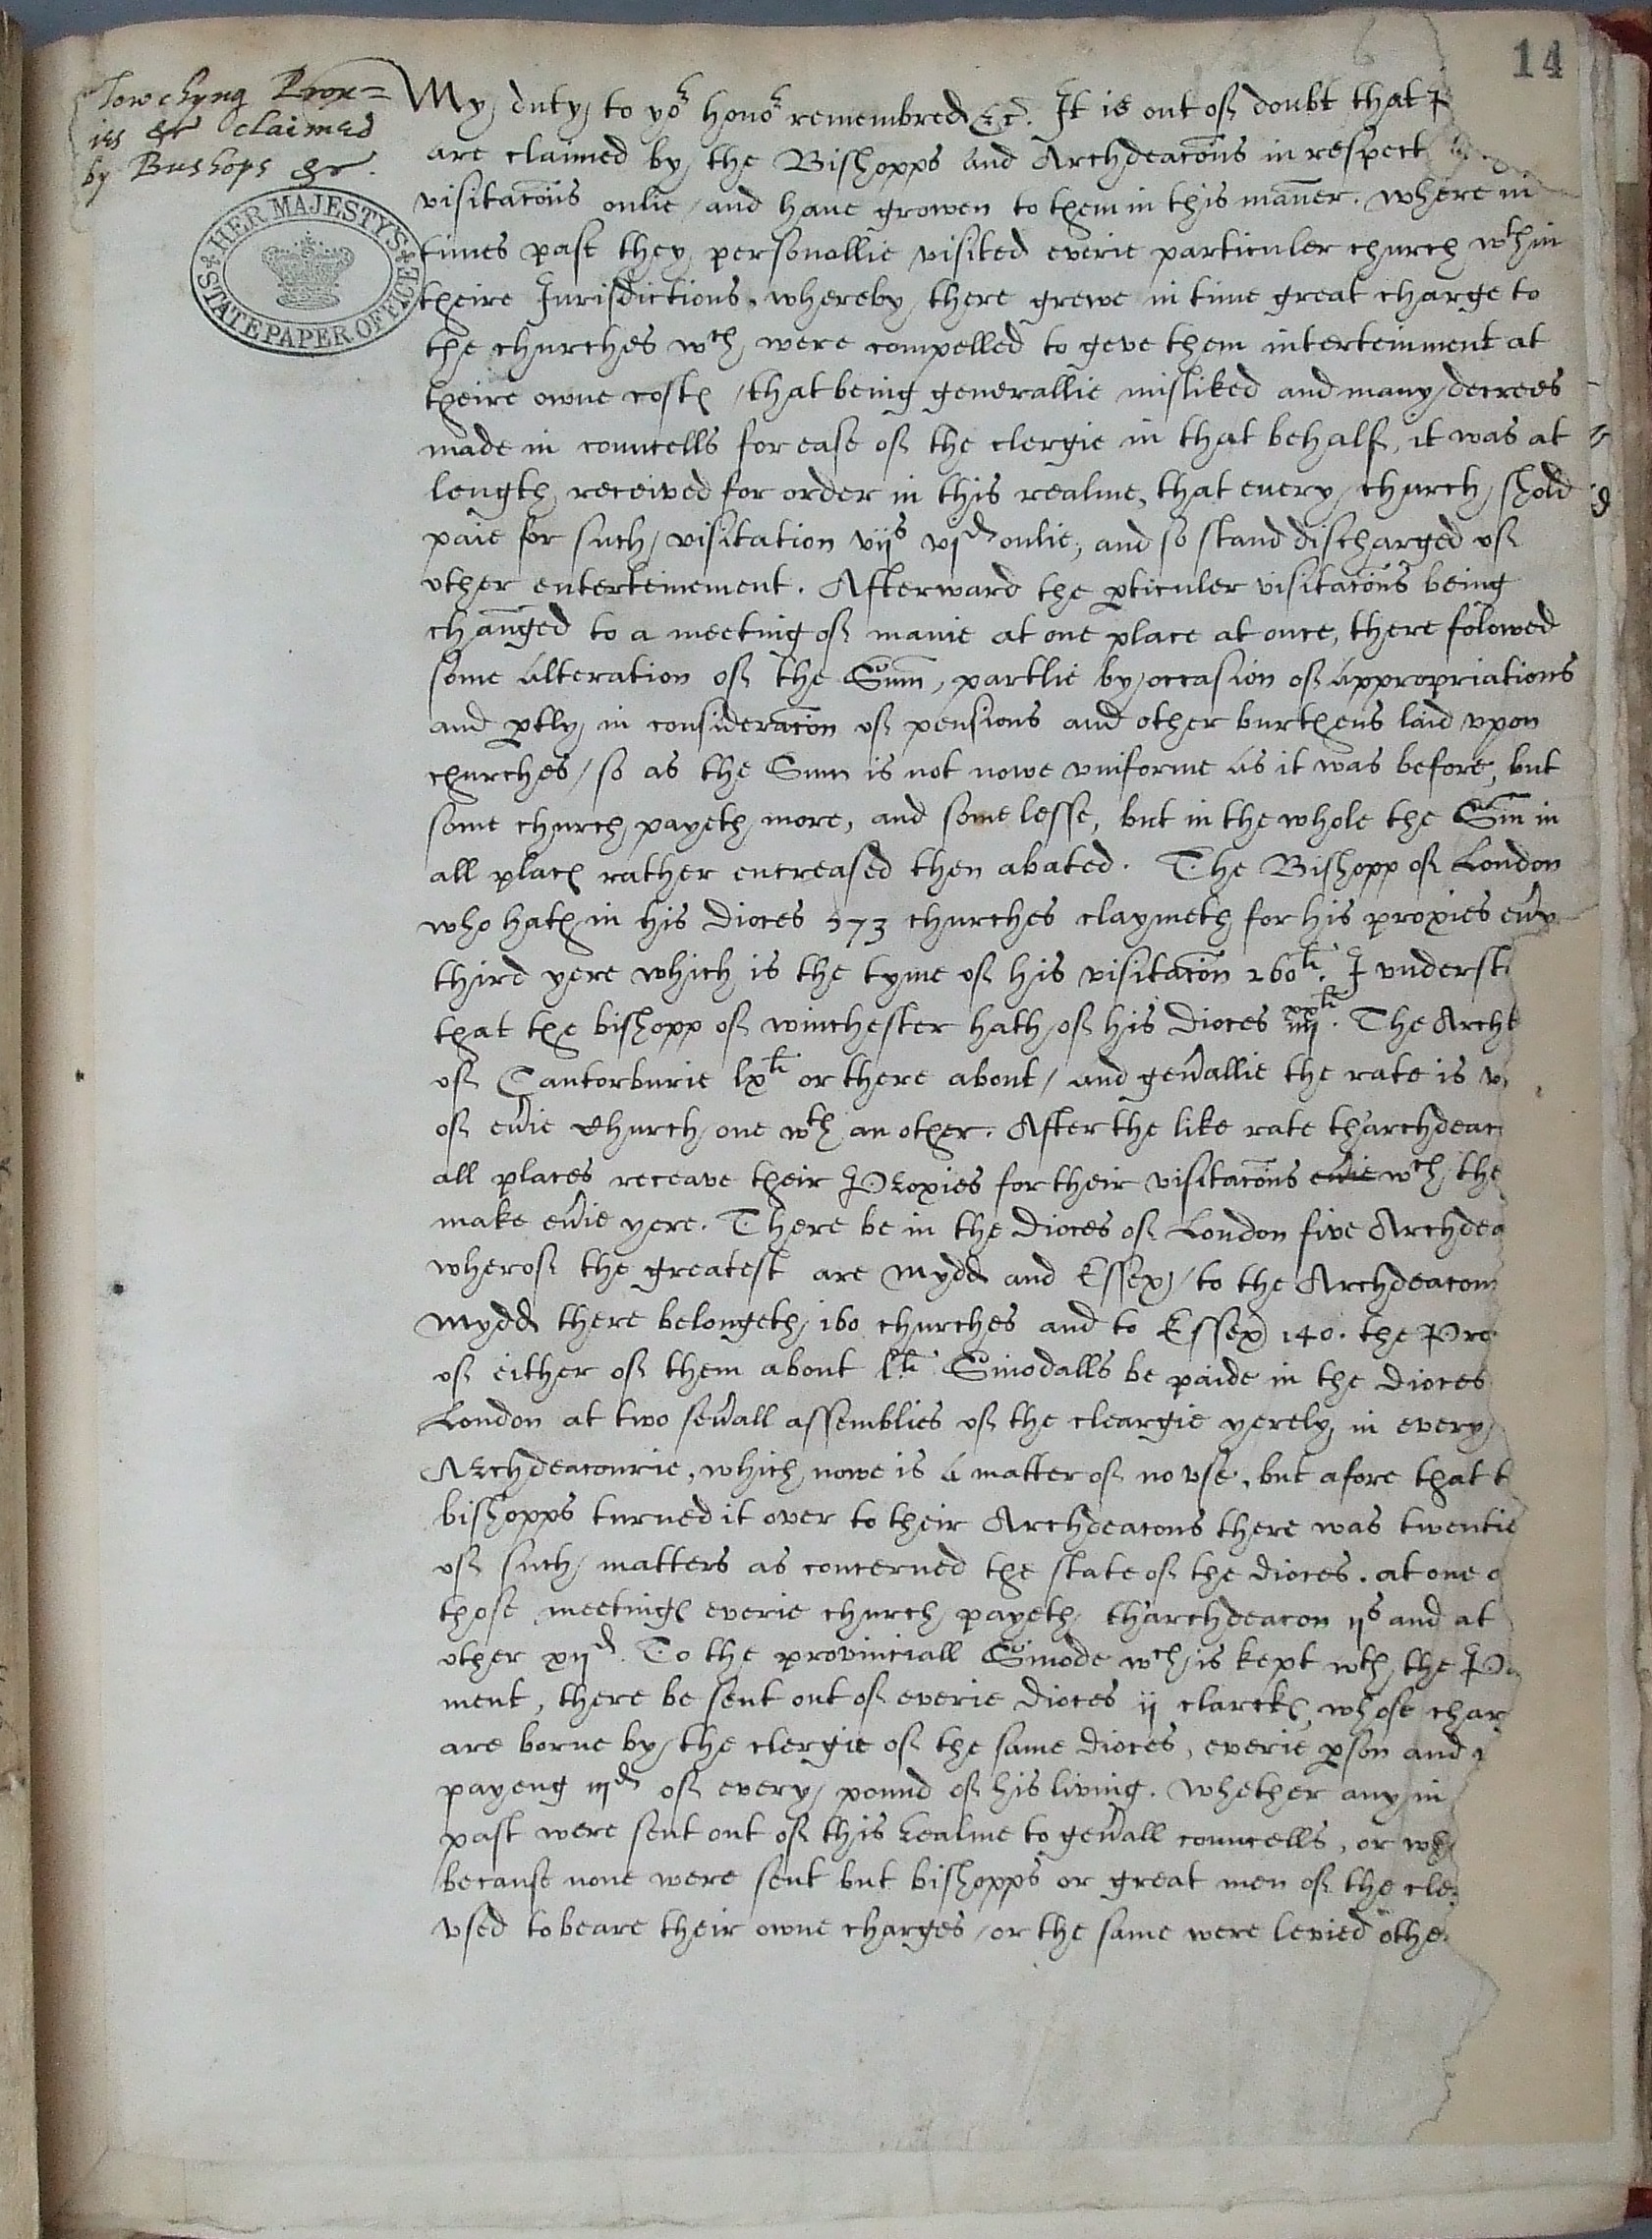 14
Towchyng Prox=
ies &c claimed
by Busshops &c.
HER MAJESTY'S STATE PAPER OFFICE
My duty to yor honor remembred &c. It is out of doubt that P
are claimed by the Bishopps and Archdeacons in respect
visitacons onlie / and haue growen to them in this maner. Where in
times past they personallie visited everie particuler church wthin
theire Jurisdictions, whereby there grewe in time great charge to
the churches wch were compelled to geve them interteinment at
theire owne costes / that being generallie misliked and many decrees
made in councells for ease of the clergie in that behalf, it was at
length received for order in this realme, that euery church shold
paie for such visitation viis vjd onlie, and so stand discharged of
other enterteinement. Afterward the pticuler visitacons being
changed to a meeting of manie at one place at once, there folowed
some alteration of the Sum, partlie by occasion of appropriations
and ptly in consideracon of pensions and other burthens laid vpon
churches / so as the Sum is not nowe vniforme as it was before, but
some church payeth more, and some lesse, but in the whole the Sum in
all places rather encreased then abated. The Bishopp of London
who hath in his dioces 573 churches claymeth for his proxies eu'y
third yere which is the tyme of his visitacon 260li. I underst
that the bishopp of winchester hath of his dioces iiiixxli. The Archb
of Cantorburie lxli or there about / and gen'allie the rate is v
of eu'ie Church one wth an other. After the like rate tharchdeac
all places receave their Proxies for their visitacons eu'ie wch the
make eu'ie yere. There be in the dioces of London five Archdea
wherof the greatest are Mydd and Essex / to the Archdeacon
Mydd there belongeth 160 churches and to Essex 140. the Pro
of either of them about lli Sinodalls be paide in the dioces
London at two seu'all assemblies of the cleargie yerely in every
Archdeaconrie, which nowe is a matter of no vse, but afore that t
bishopps turned it over to their Archdeacons there was twentie
of such matters as concerned the state of the dioces. at one o
those meetinges everie church payeth tharchdeacon iis and at
other xiid. To the provinciall Sinode wch is kept wth the Pa
ment, there be sent out of everie dioces ij clarckes, whose char
are borne by the clergie of the same dioces, everie pson and v
payeng iiid of every pound of his living. Whether any in
past were sent out of this Realme to gen'all councells, or wh
because none were sent but bishopps or great men of the cle
vsed to beare their owne charges / or the same were levied othe